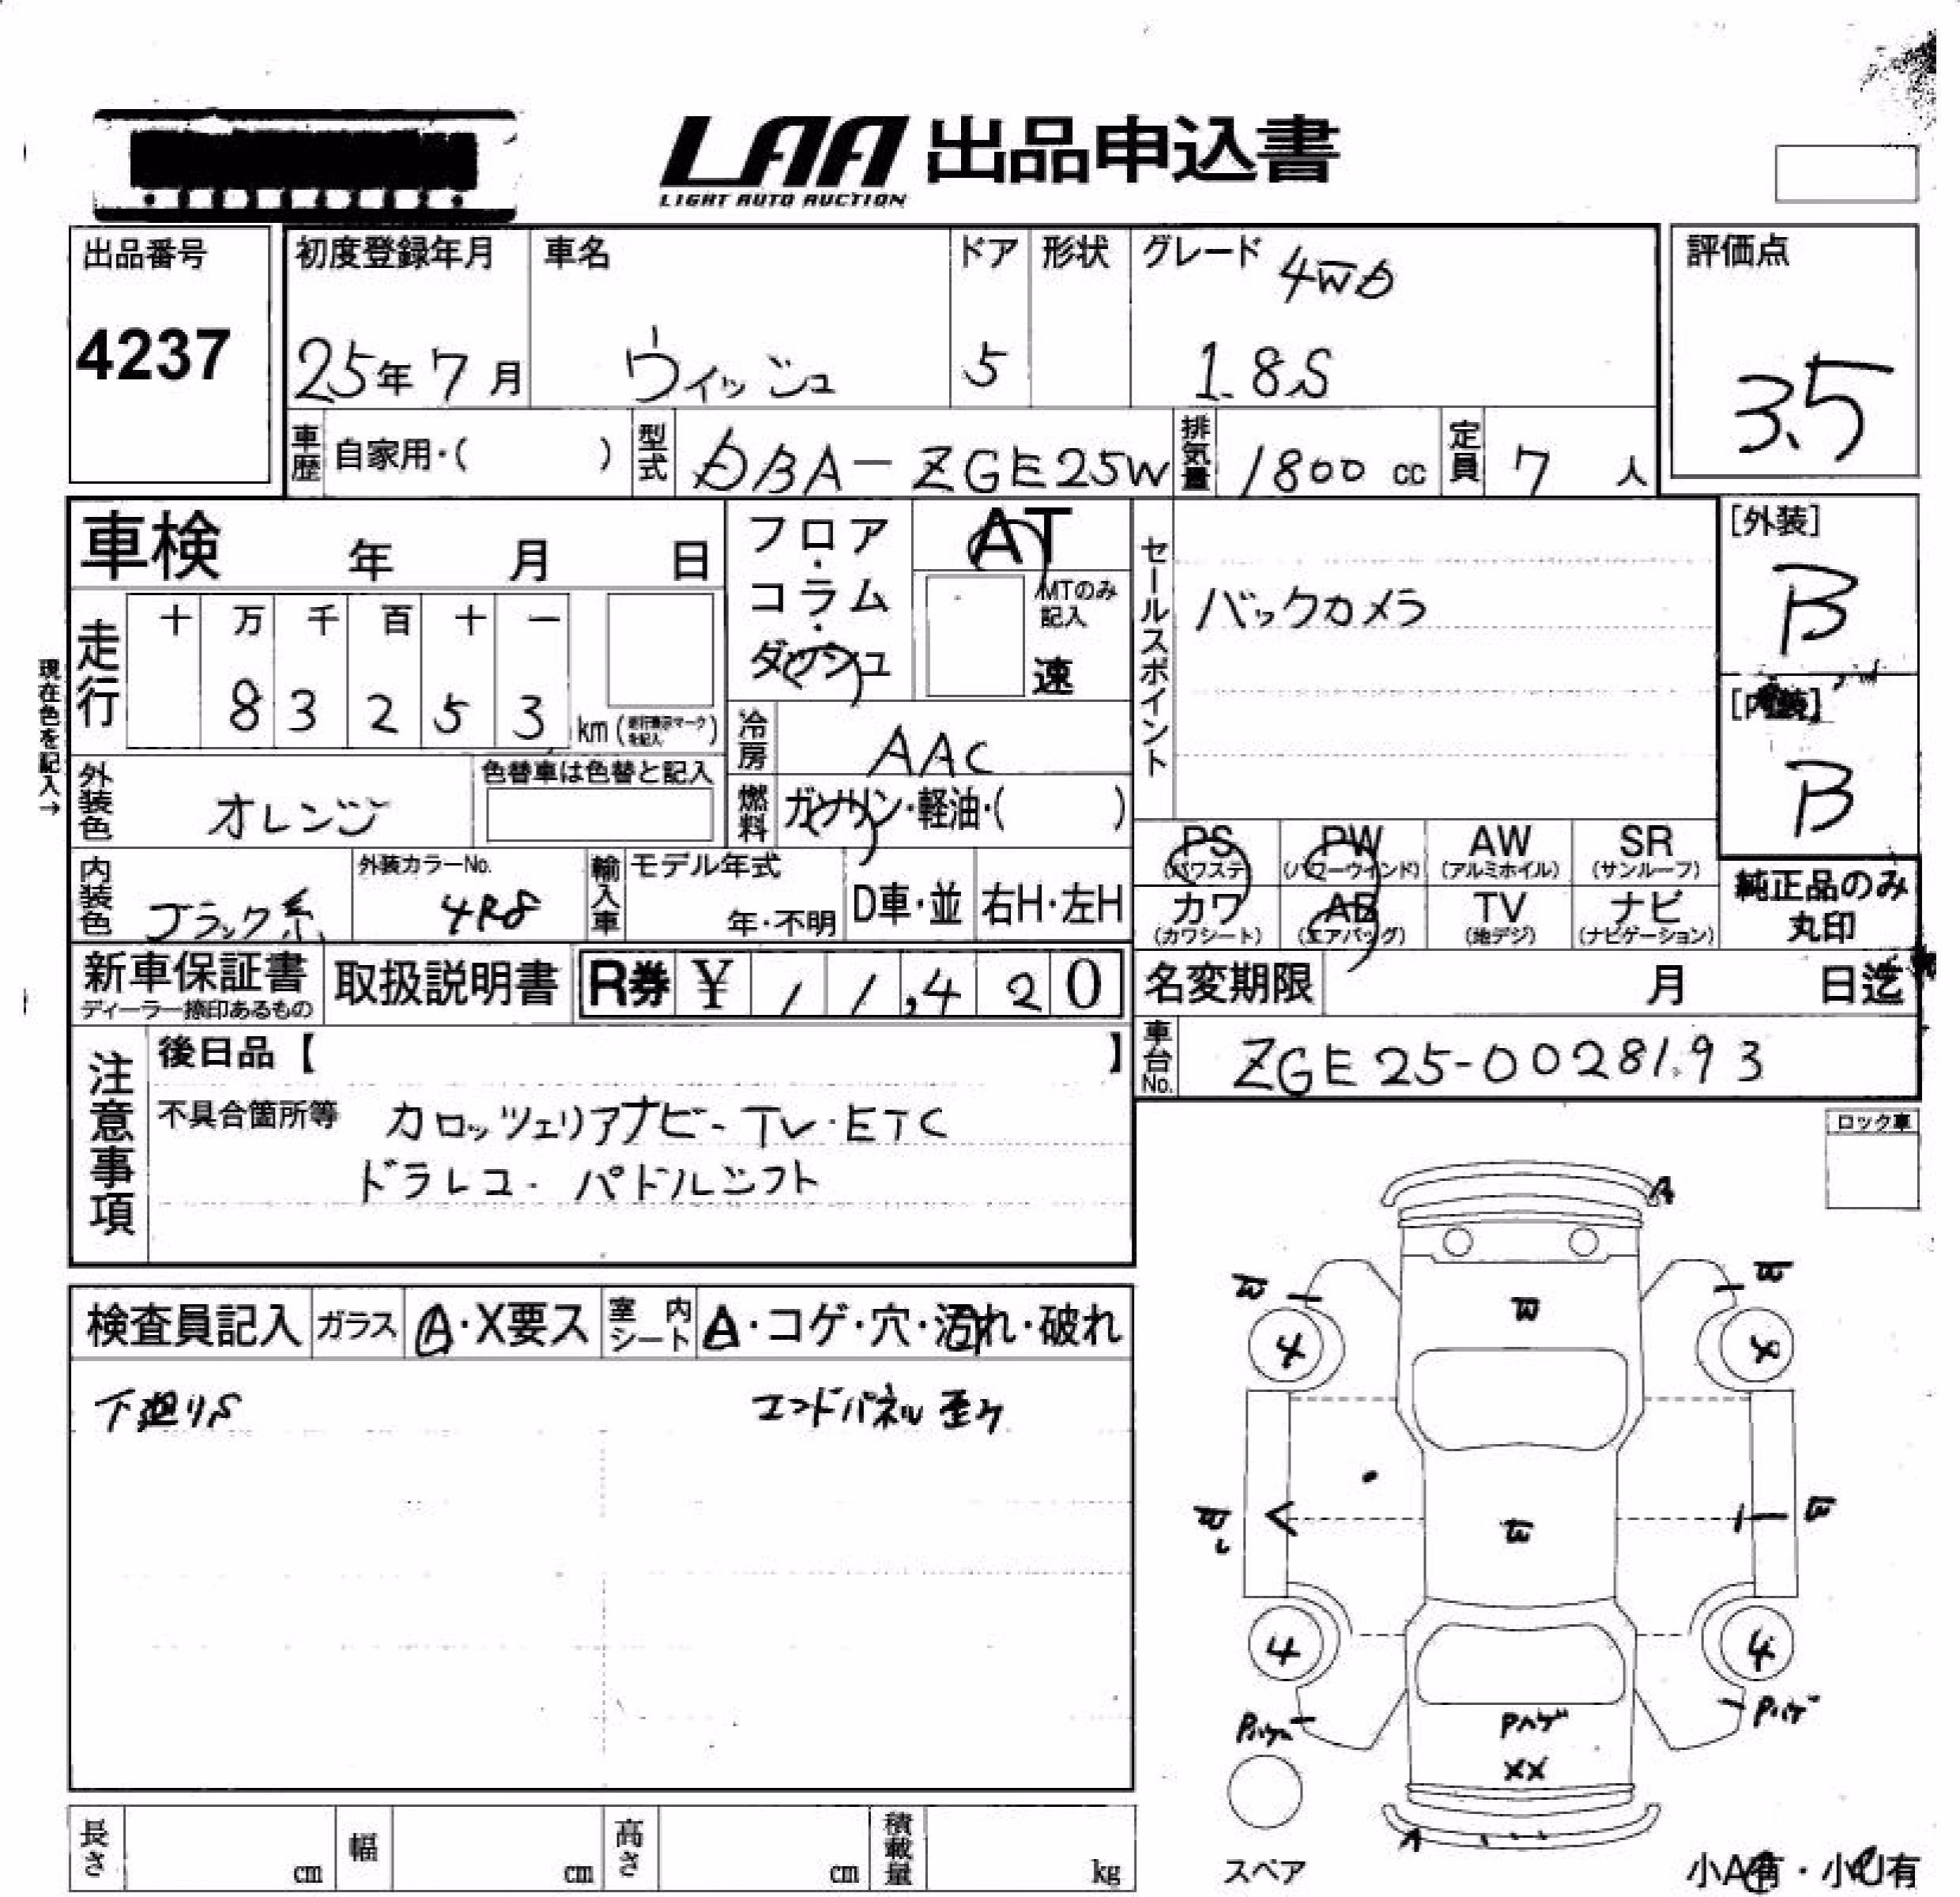 LAA 出品申込書
LIGHT AUTO AUCTION
出品番号
4237
初度登録年月
25年 7月
車名
ウィッシュ
ドア
5
形状
グレード 4WD
1.8S
評価点
3.5
車歴 自家用・( )
型式 DBA-ZGE25W
排気量 1800 cc
定員 7 人
車検 年 月 日
フロア・コラム・ダッシュ
AT
MTのみ記入
速
セールスポイント
バックカメラ
[外装]
B
[内装]
B
現在色を記入→
走行
十 万 千 百 十 一
8 3 2 5 3 km (走行表示マークを記入)
冷房 AAC
外装色 オレンジ
色替車は色替と記入
燃料 ガソリン・軽油・( )
PS (パワステ)
PW (パワーウインド)
AW (アルミホイル)
SR (サンルーフ)
カワ (カワシート)
AB (エアバッグ)
TV (地デジ)
ナビ (ナビゲーション)
純正品のみ丸印
内装色 ブラック系
外装カラーNo.
4R8
輸入車
モデル年式
年・不明
D車・並
右H・左H
新車保証書
ディーラー捺印あるもの
取扱説明書
R券 ¥ 11,420
名変期限 月 日迄
車台No. ZGE25-0028193
注意事項
後日品【 】
不具合箇所等 カロッツェリアナビ・TV・ETC
ドラレコ・パドルシフト
ロック車
検査員記入
ガラス A・X要ス
室内シート A・コゲ・穴・汚れ・破れ
下廻りS
エンドパネル歪み
A
W W
W
4 4
W W
W
4 4
Pハゲ Pハゲ Pハゲ
XX
A
スペア
小A有・小U有
長さ cm
幅 cm
高さ cm
積載量 kg